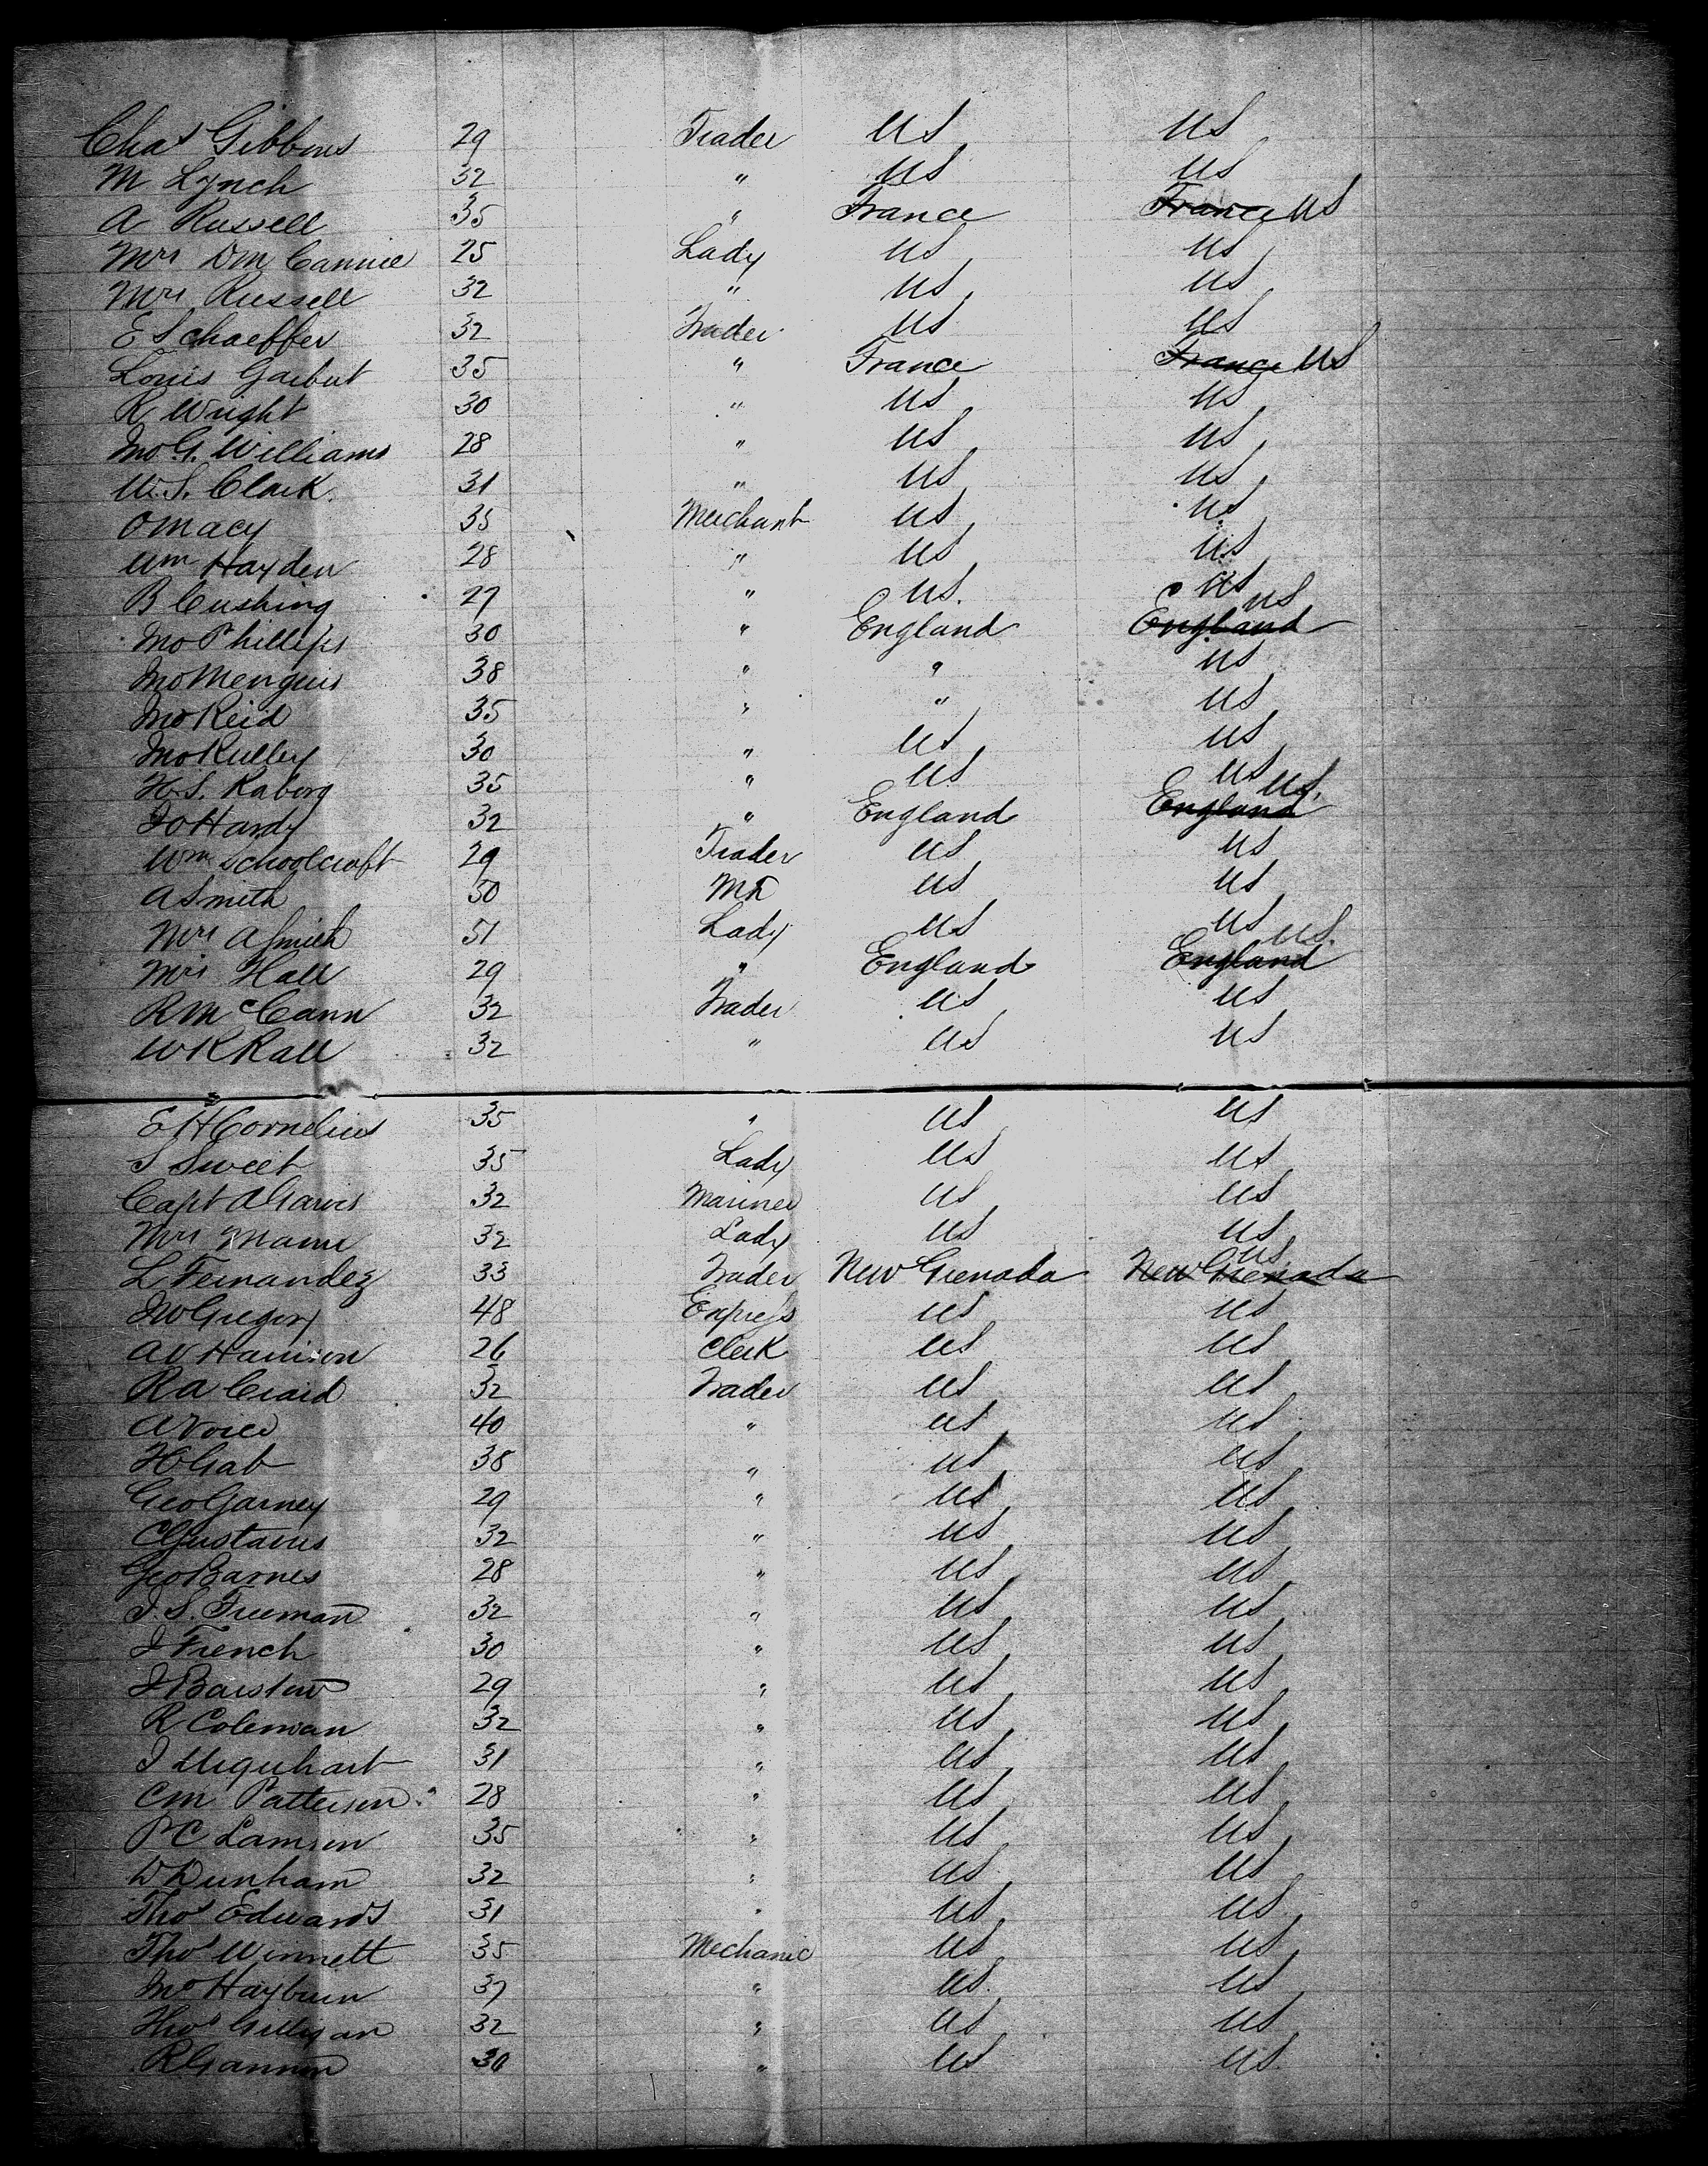 Chas Gibbons 29 Trader US US
M Lynch 32 " US US
A Russell 35 " France France US
Mrs Wm Cannice 25 Lady US US
Mrs Russell 32 " US US
E Schaeffer 32 Trader US US
Louis Garbut 35 " France France US
R Wright 30 " US US
Jno G. Williams 28 " US US
W. S. Clark 31 " US US
O Macy 35 Merchant US US
Wm Hayden 28 " US US
B Cushing 27 " US. US
Jno Phillips 30 " England England US
Jno Menguis 38 " " US
Jno Reid 35 " " US
Jno Kulley 30 " US US
H. S. Raborg 35 " US US
Jo Hardy 32 " England England US.
Wm Schoolcraft 29 Trader US US
A Smith 50 Mr US US
Mrs A Smith 51 Lady US US
Mrs Hall 29 " England England US.
R McCann 32 Trader US US
W K Rall 32 " US US
E H Cornelius 35 " US US
S Sweet 35 Lady US US
Capt A Garvis 32 Mariner US US
Mrs Mann 32 Lady US US
L Fernandez 33 Trader New Grenada New Grenada US
Jno Gregory 48 Express US US
A V Harrison 26 Clerk US US
R A Craid 32 Trader US US
A 40 " US US
H Gab 38 " US US
Geo Garney 29 " US US
C Gustavus 32 " US US
Geo Barnes 28 " US US
J. S. Freeman 32 " US US
J French 30 " US US
J Barstow 29 " US US
R Coleman 32 " US US
J Urquhart 31 " US US
C M Patterson 28 " US US
P C Lamson 35 " US US
D Dunham 32 " US US
Thos Edwards 31 " US US
Thos Winnett 35 Mechanic US US
Jno Hayburn 37 " US US
Thos Gilligan 32 " US US
R Gannon 30 " US US